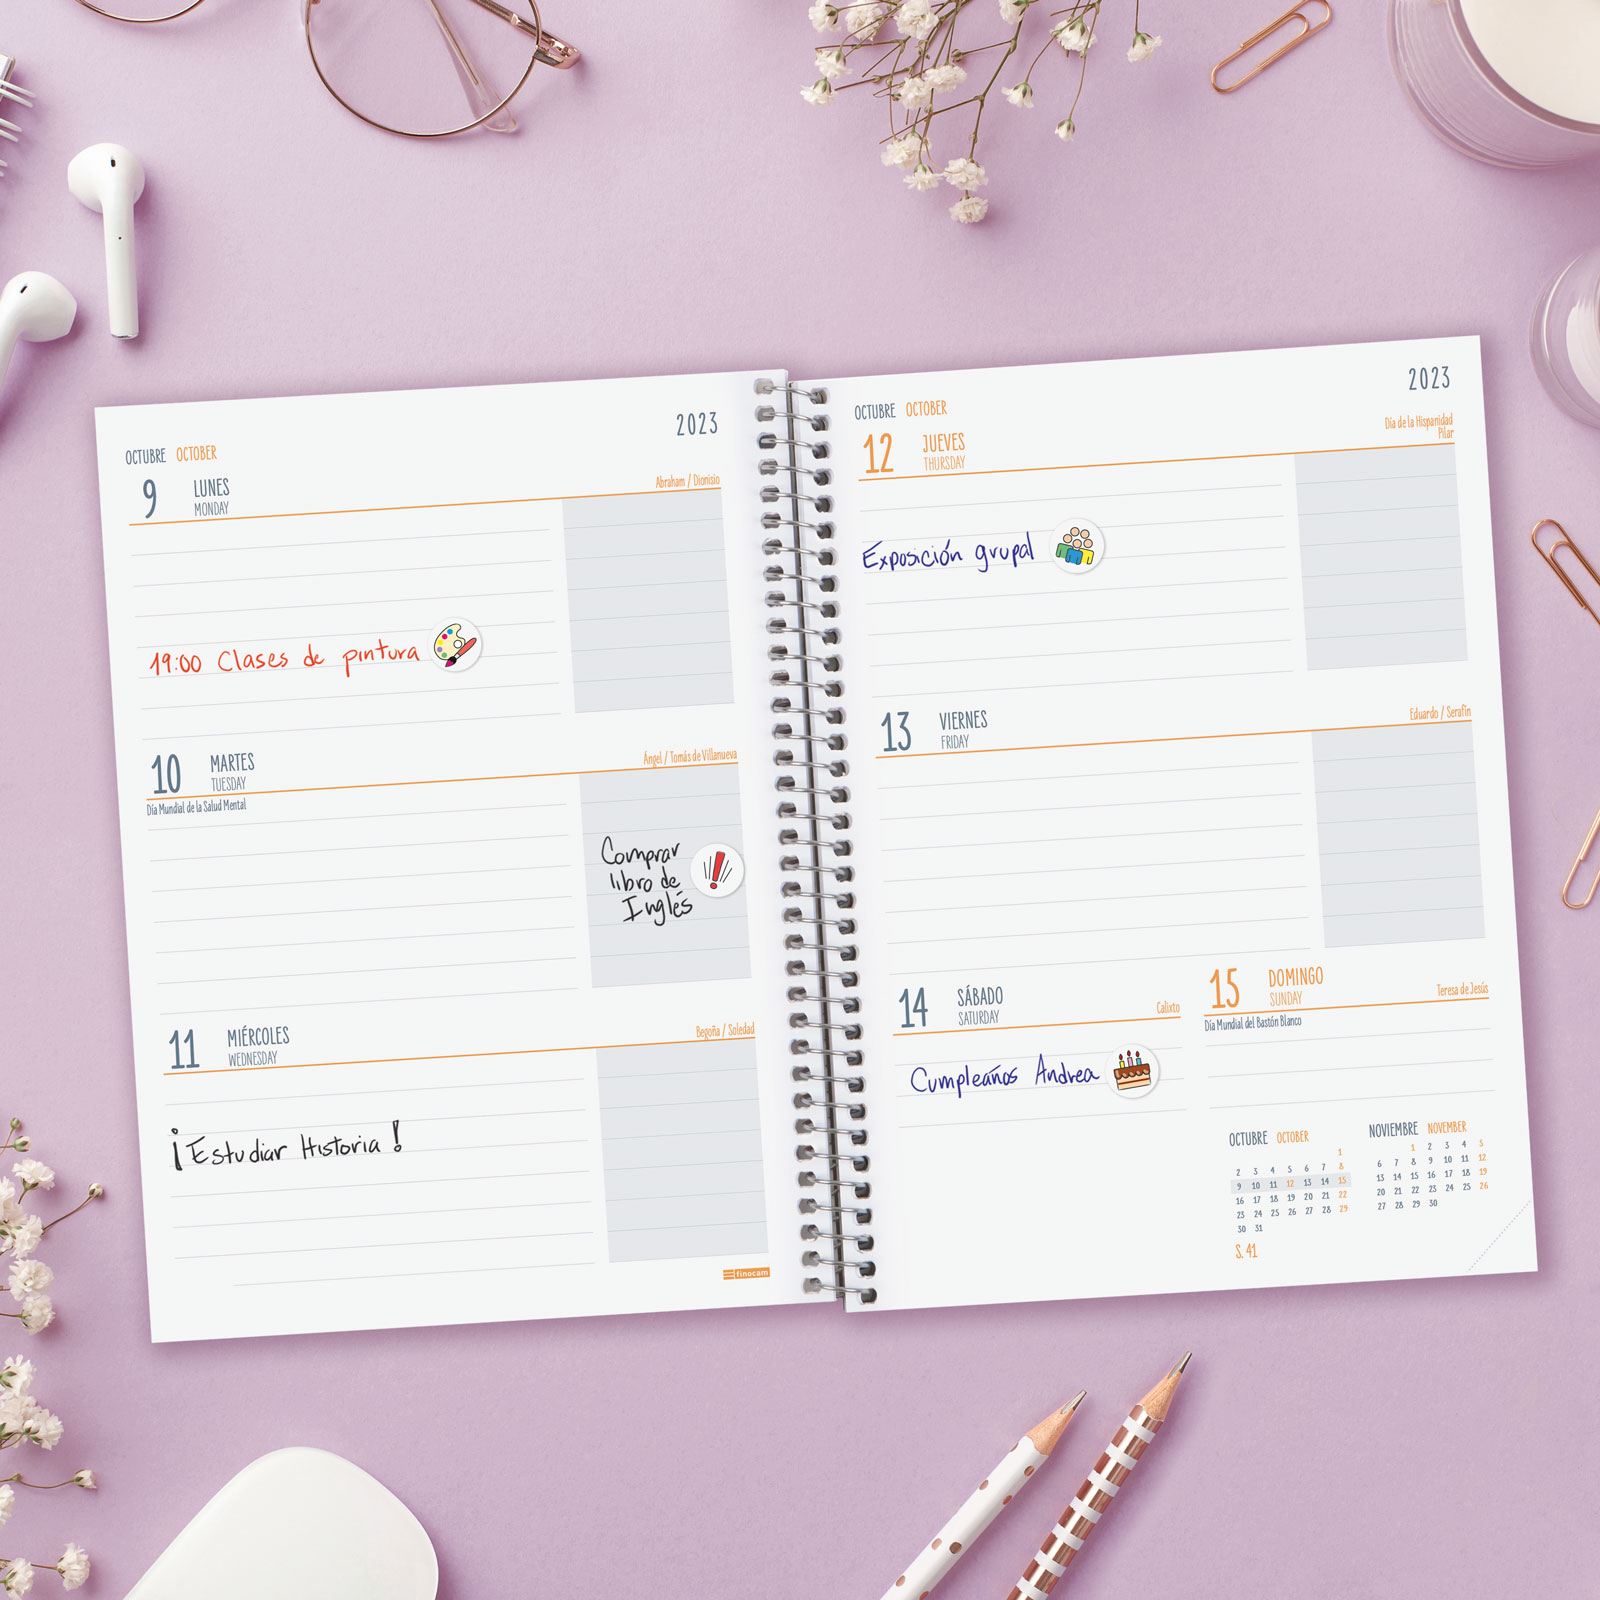 2023
OCTUBRE OCTOBER
9 LUNES
MONDAY
Abraham / Dionisio
19:00 Clases de pintura
10 MARTES
TUESDAY
Ángel / Tomás de Villanueva
Día Mundial de la Salud Mental
Comprar
libro de
Inglés
11 MIÉRCOLES
WEDNESDAY
Begoña / Soledad
¡Estudiar Historia!
finocam
2023
OCTUBRE OCTOBER
12 JUEVES
THURSDAY
Día de la Hispanidad
Pilar
Exposición grupal
13 VIERNES
FRIDAY
Eduardo / Serafín
14 SÁBADO
SATURDAY
Calixto
Cumpleaños Andrea
15 DOMINGO
SUNDAY
Teresa de Jesús
Día Mundial del Bastón Blanco
OCTUBRE OCTOBER
1
2 3 4 5 6 7 8
9 10 11 12 13 14 15
16 17 18 19 20 21 22
23 24 25 26 27 28 29
30 31
S. 41
NOVIEMBRE NOVEMBER
1 2 3 4 5
6 7 8 9 10 11 12
13 14 15 16 17 18 19
20 21 22 23 24 25 26
27 28 29 30